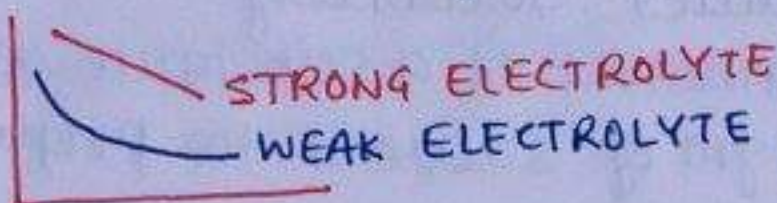 STRONG ELECTROLYTE
WEAK ELECTROLYTE